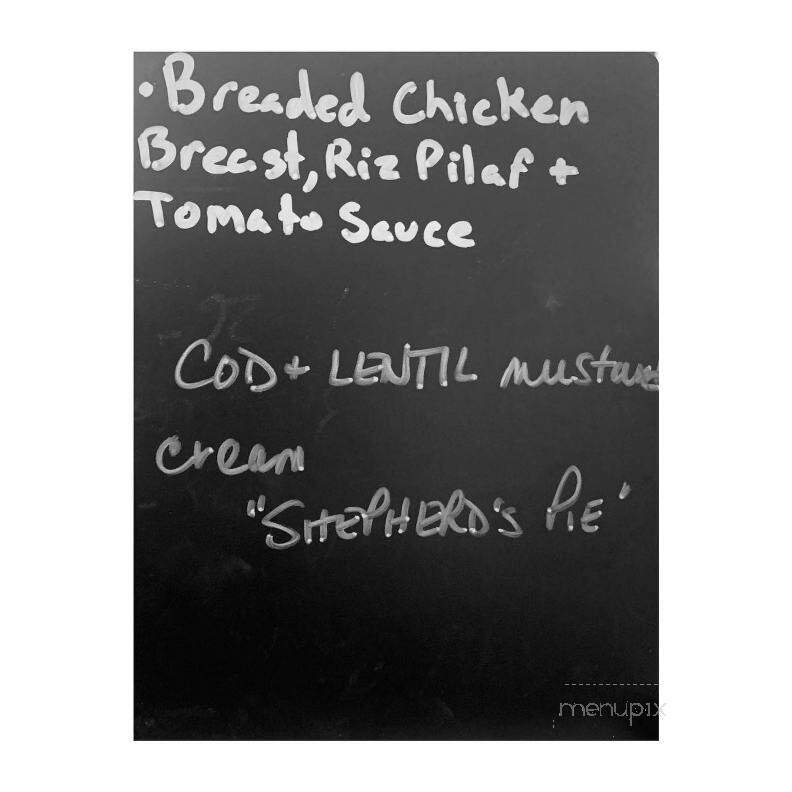 • Breaded Chicken
Breast, Riz Pilaf +
Tomato Sauce
COD + LENTIL mustard
cream
"SHEPHERD'S PIE"
menupix